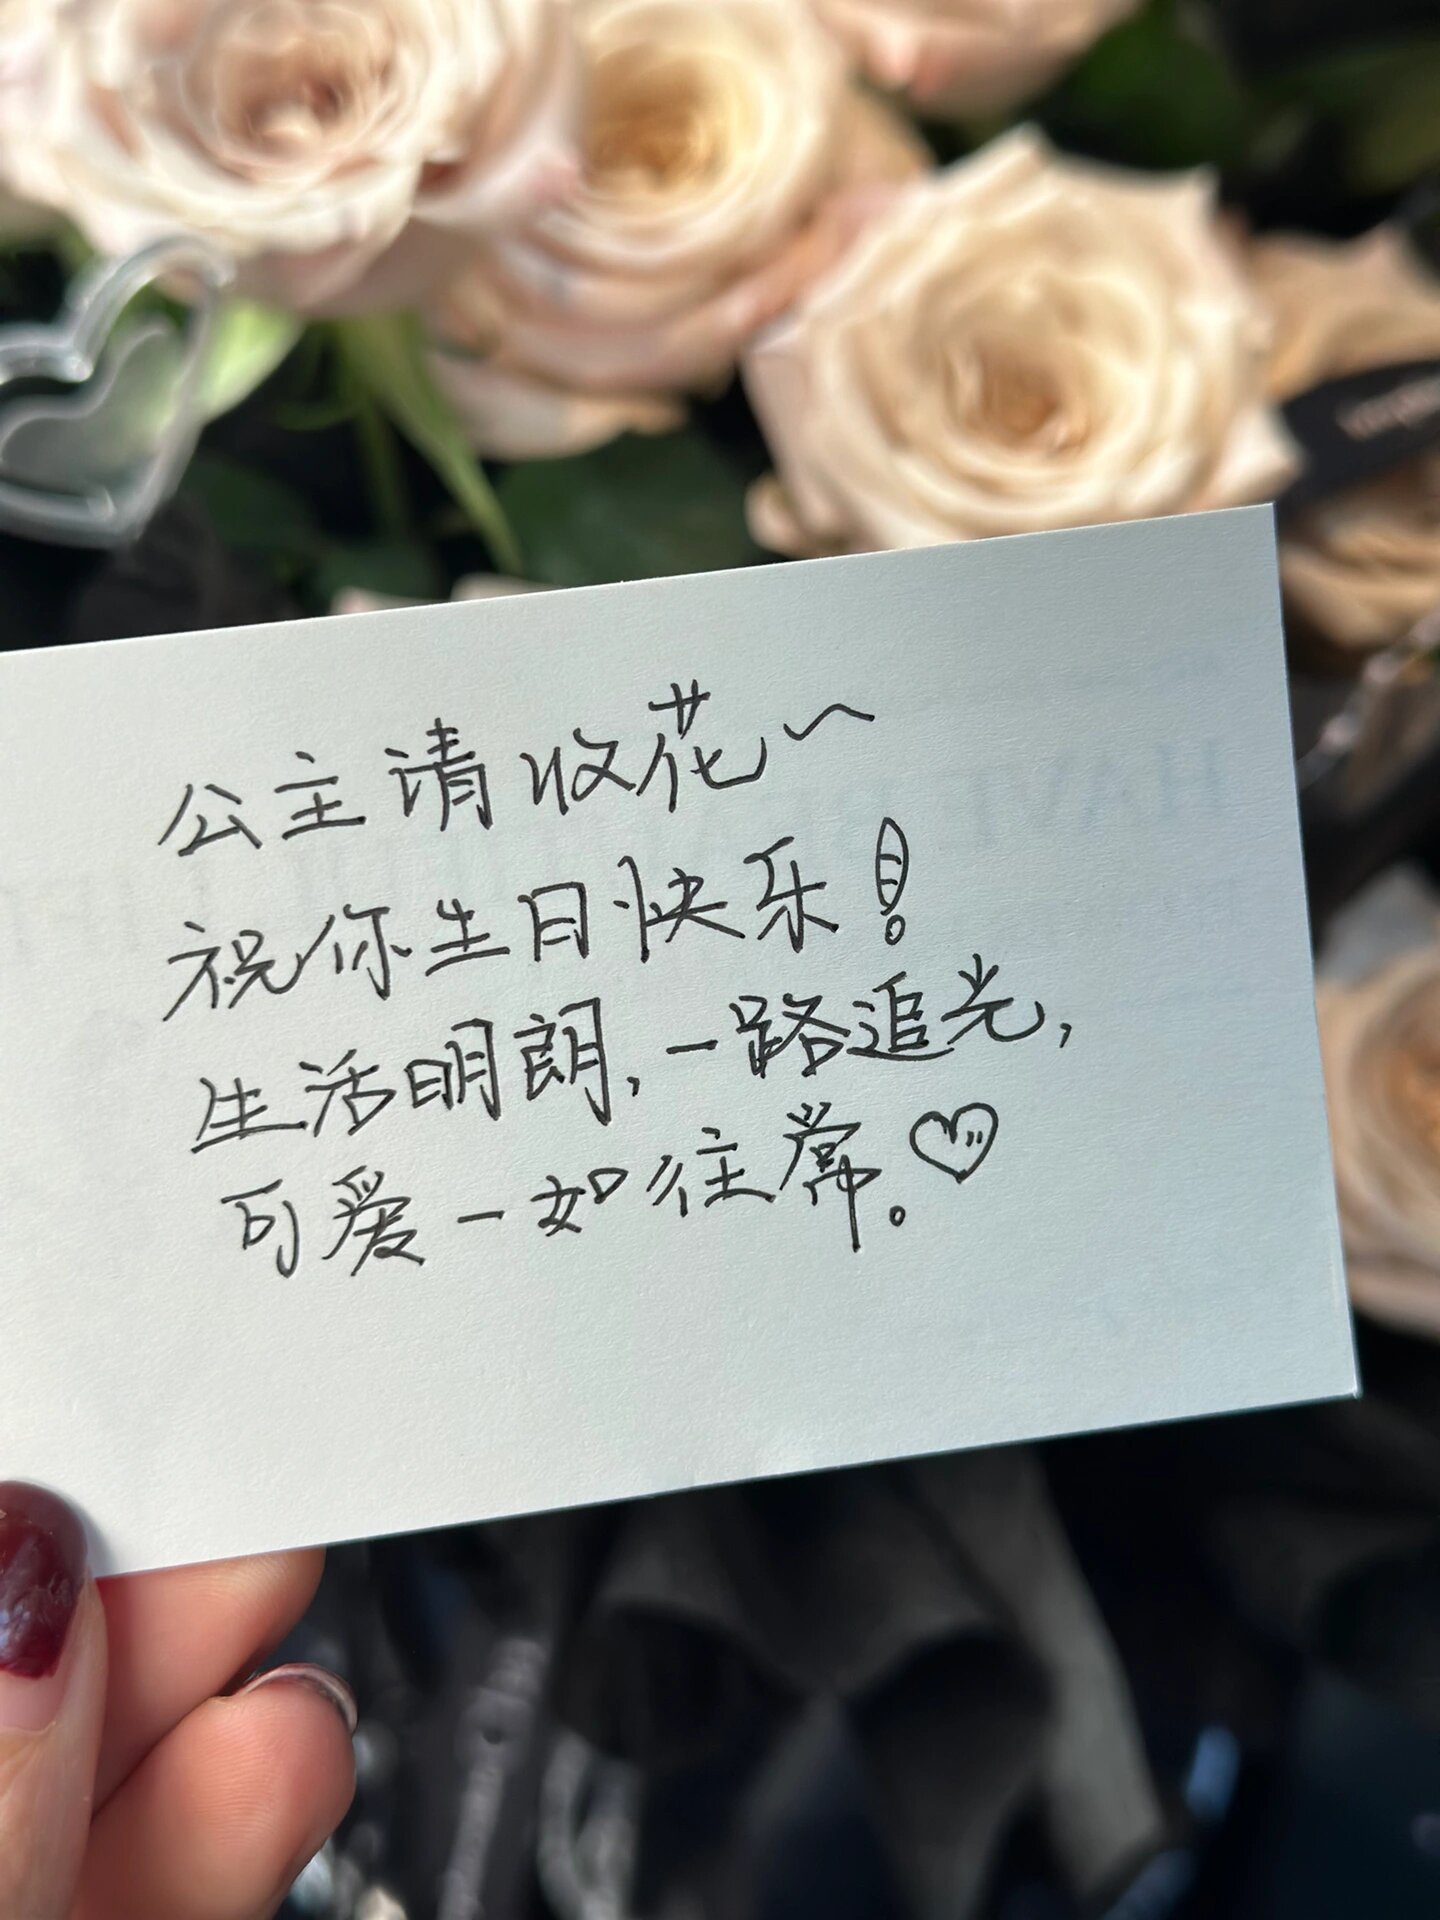 公主请收花～
祝你生日快乐！
生活明朗，一路追光，
可爱一如往常。♡